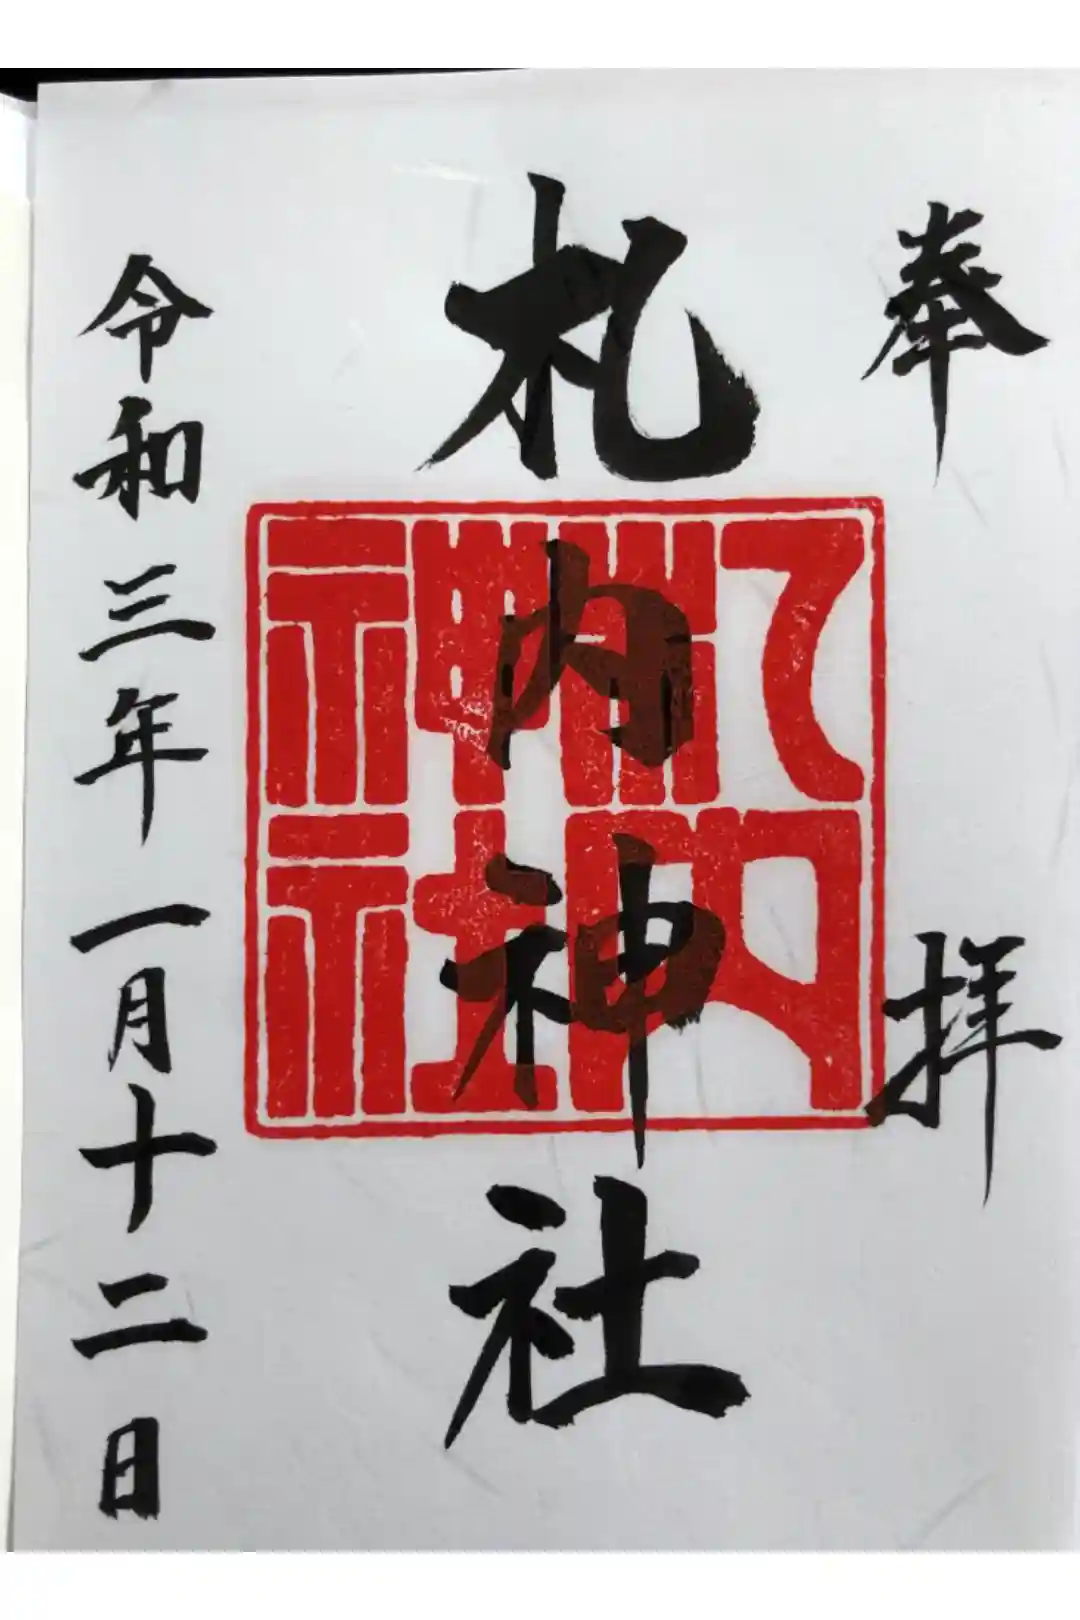 奉拝
札内神社
札内神社
令和三年一月十二日